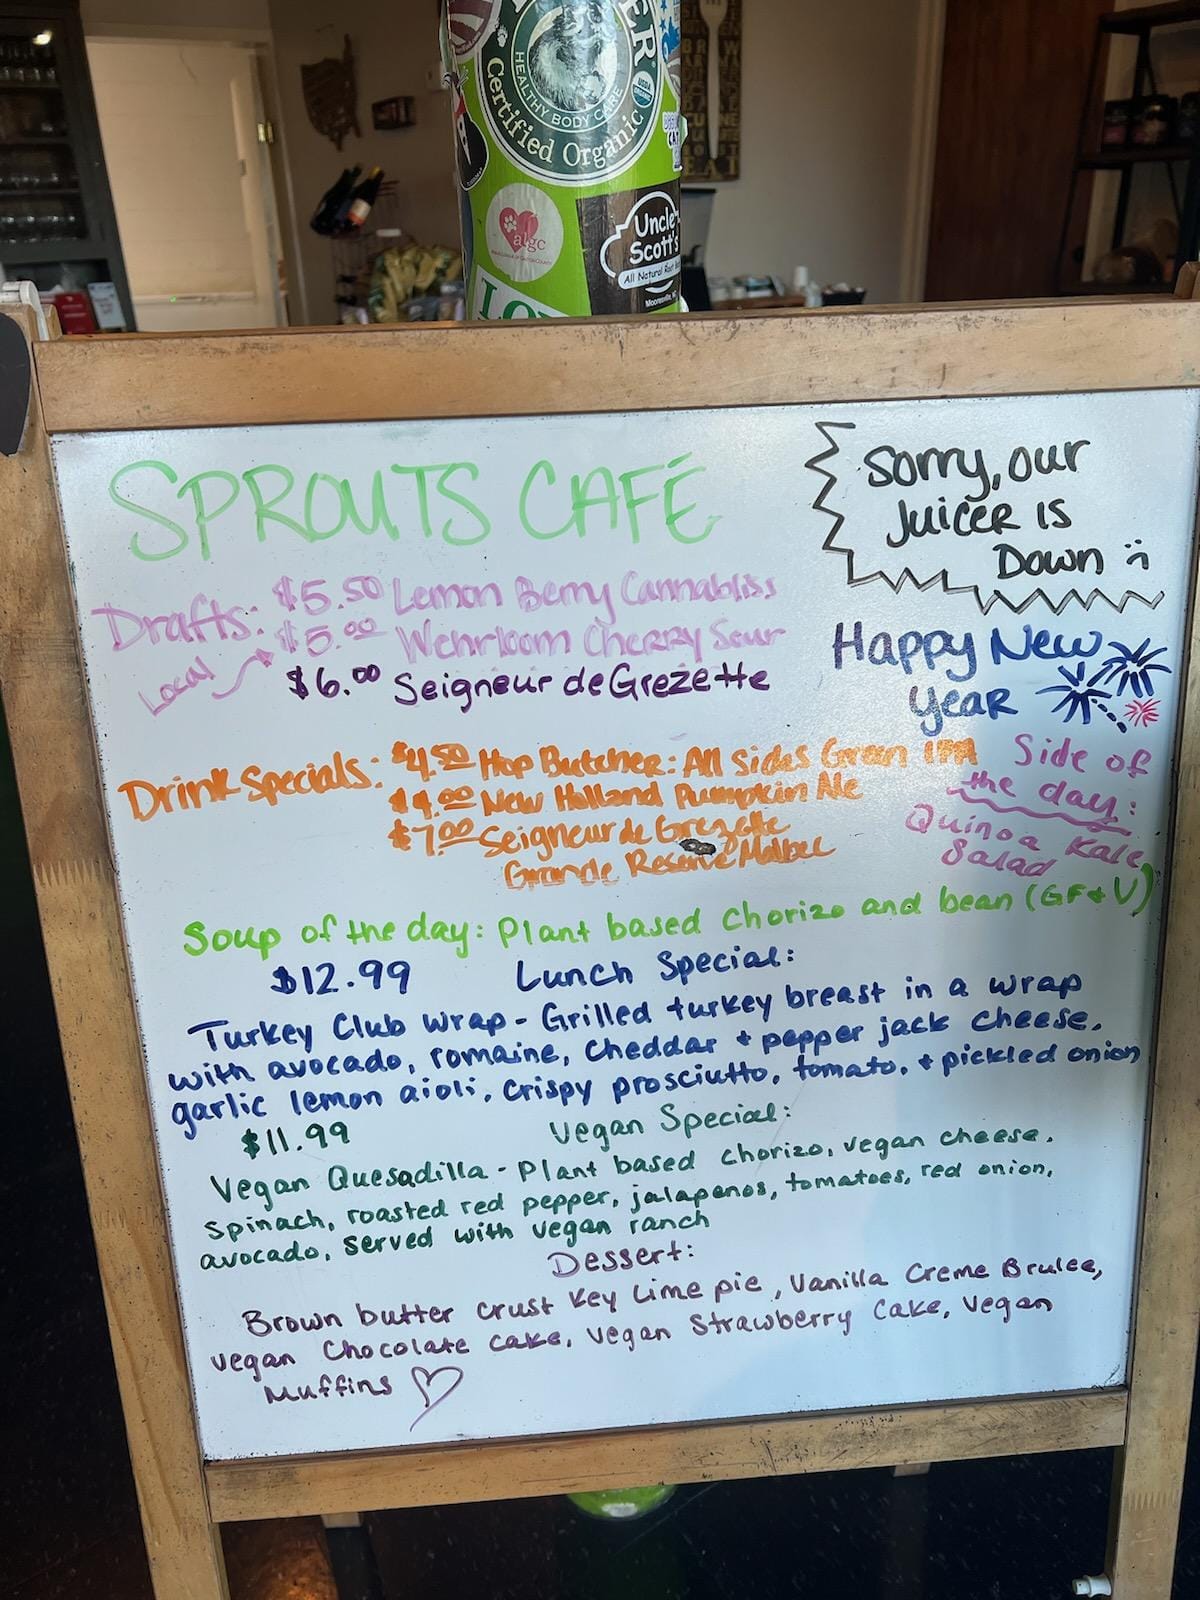 Certified Organic
HEALTHY BODY CARE
USDA
ORGANIC
algc
Uncle
Scott's
All Natural Root
Mooresville, NC
SPROUTS CAFÉ
Sorry, our
Juicer is
Down
Drafts: $5.50 Lemon Berry Cannabliss
Local $5.00 Wehrloom Cherry Sour
$6.00 Seigneur de Grezette
Happy New
Year
Drink Specials: $4.50 Hop Butcher: All Sides Green IPA
$4.00 New Holland Pumpkin Ale
$7.00 Seigneur de Grezette
Grande Reserve Malbec
Side of
the day:
Quinoa Kale
Salad
Soup of the day: Plant based chorizo and bean (GF & V)
$12.99 Lunch Special:
Turkey Club Wrap - Grilled turkey breast in a wrap
with avocado, romaine, cheddar + pepper jack cheese,
garlic lemon aioli, crispy prosciutto, tomato, + pickled onion
$11.99 Vegan Special:
Vegan Quesadilla - Plant based chorizo, vegan cheese,
spinach, roasted red pepper, jalapenos, tomatoes, red onion,
avocado, served with vegan ranch
Dessert:
Brown butter crust Key Lime pie, Vanilla Creme Brulee,
vegan Chocolate cake, vegan Strawberry Cake, vegan
Muffins